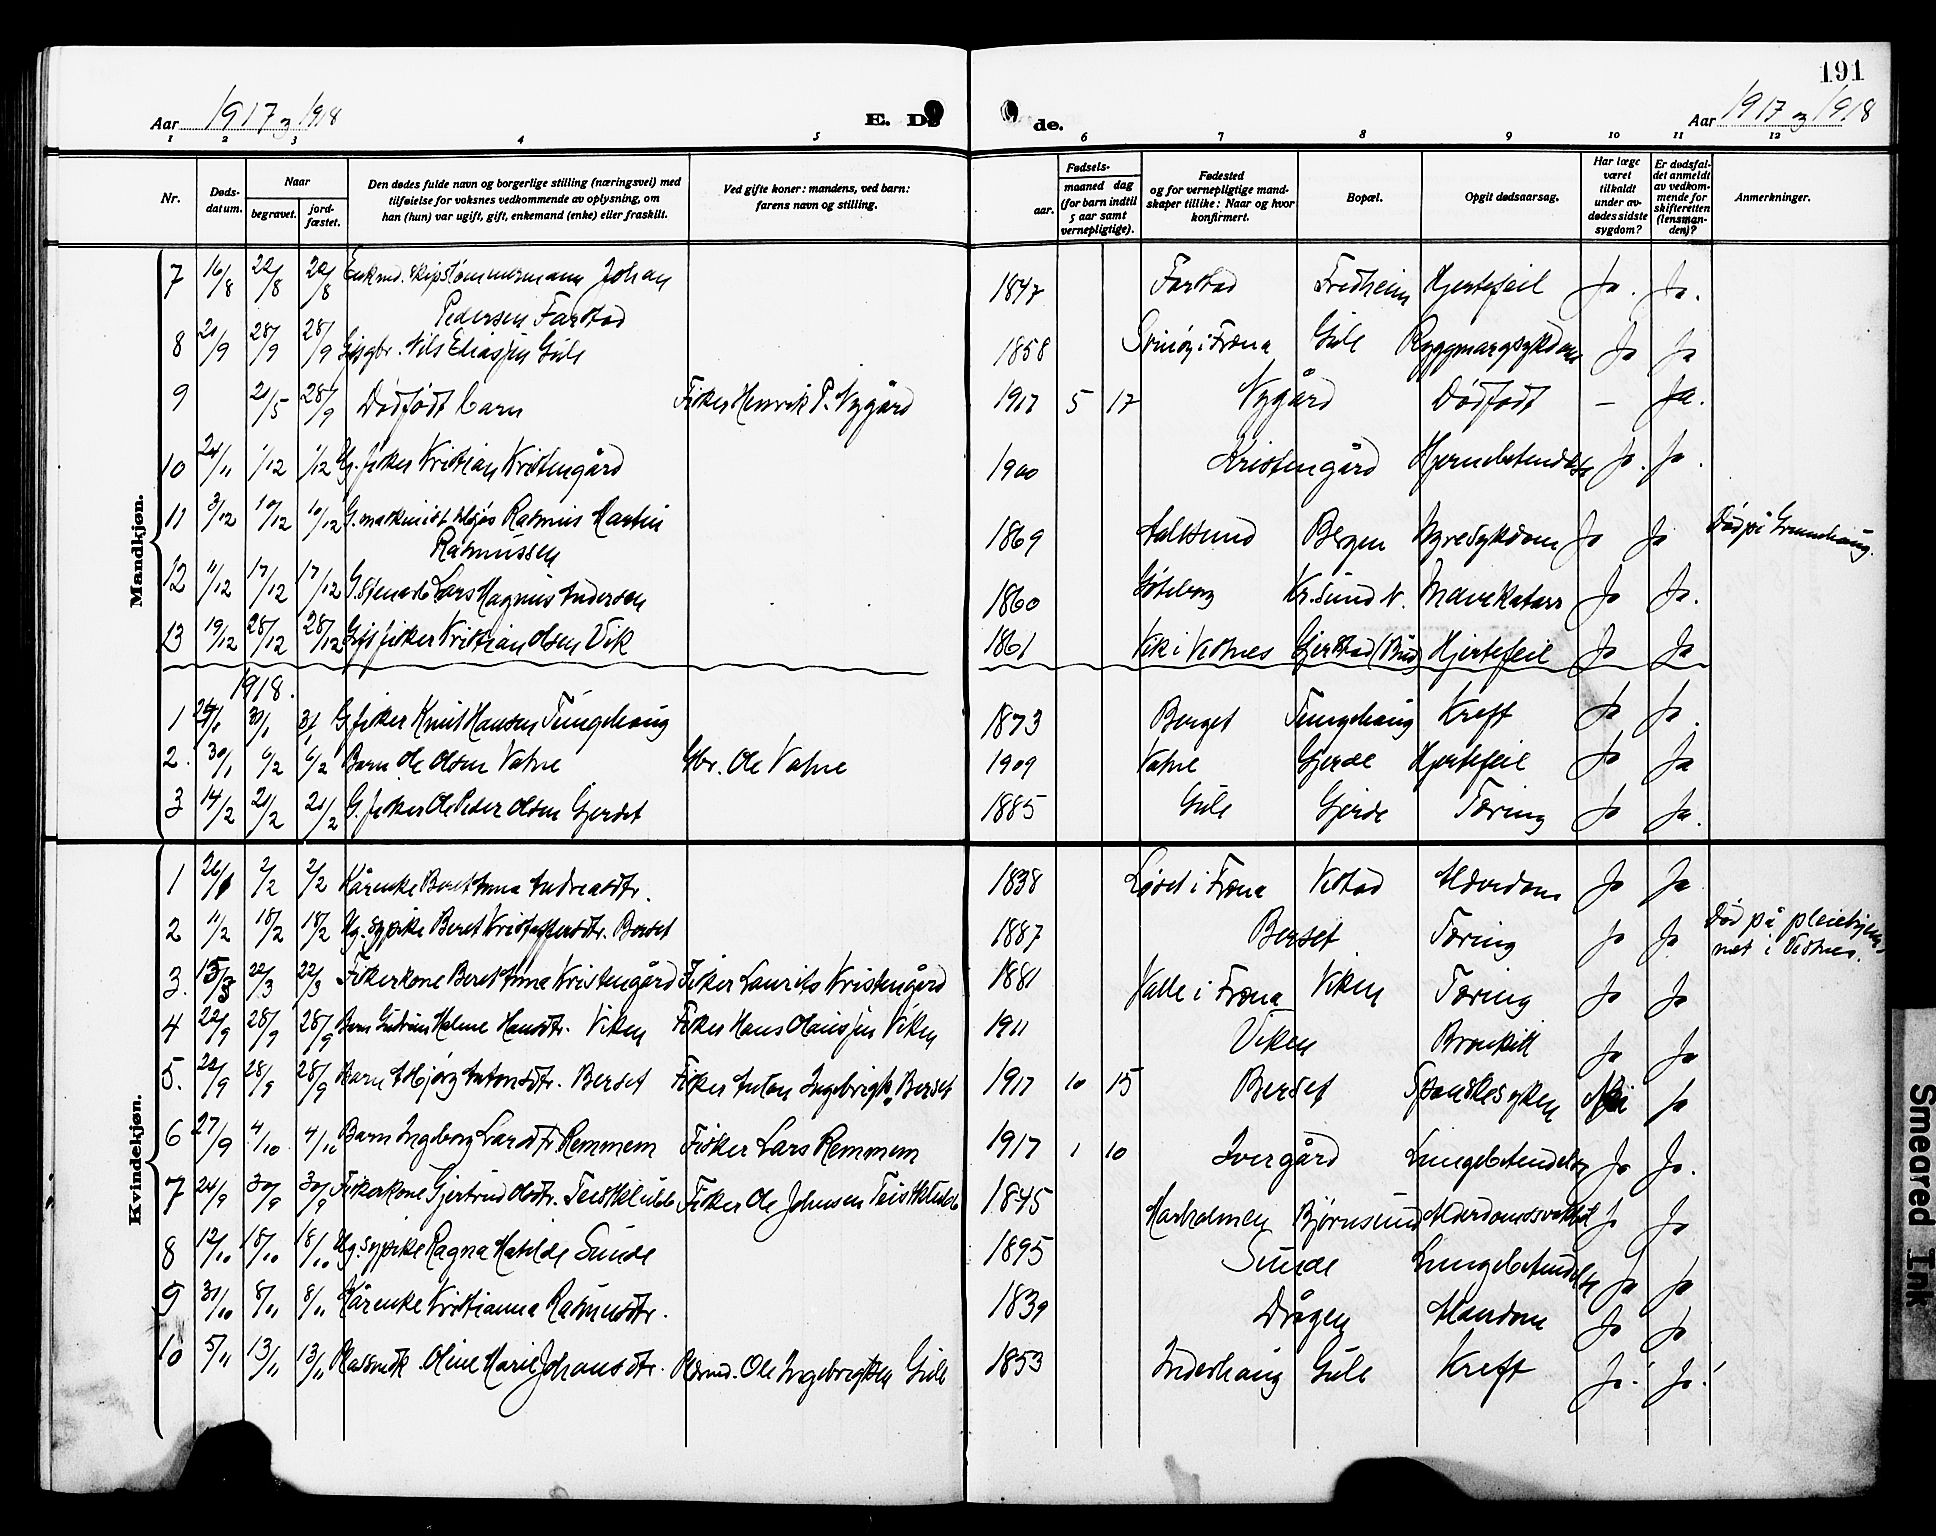 191
Aar 1917 og 1918 E. Døde. Aar 1917 og 1918
1 2 3 4 5 6 7 8 9 10 11 12
Nr. Døds-datum. Naar begravet. jord-fæstet. Den dødes fulde navn og borgerlige stilling (næringsvei) med tilføielse for voksnes vedkommende av oplysning, om han (hun) var ugift, gift, enkemand (enke) eller fraskilt. Ved gifte koner: mandens, ved barn: farens navn og stilling. Fødsels- aar. maaned dag (for barn indtil 5 aar samt vernepligtige). Fødested og for vernepligtige mandskaper tillike: Naar og hvor konfirmert. Bopæl. Opgit dødsaarsag. Har læge været tilkaldt under avdødes sidste sygdom? Er dødsfaldet anmeldt av vedkommende for skifteretten (lensmanden)? Anmerkninger.
Mandkjøn.
7 16/8 22/8 22/8 Enkmd. skipstømmermann Johan Pedersen Farstad 1847 Farstad Fredheim Hjertefeil Ja. Ja.
8 21/9 28/9 28/9 Nils Eliassen Gule 1858 i Fræna Gule Ryggmargsykdom Ja Ja
9 21/5 28/9 Dødfødt barn Fisker Henrik P. Nygård 1917 5 17 Nygård Dødfødt – Ja.
10 24/11 1/12 1/12 G. fisker Kristian Kristengård 1900 Kristengård Hjernebetendelse Ja. Ja.
11 3/12 10/12 10/12 G. maskinist Rasmus Martin Rasmussen 1869 Aalesund Bergen Nyresykdom Ja Ja Død på Grundhaug.
12 11/12 17/12 17/12 G. Lars Magnus Anderson 1860 Gøteborg Kr.sund N. Mavekatarr Ja Ja.
13 19/12 28/12 28/12 Gift fisker Kristian Olsen Vik 1861 Vik i Vestnes Gjerstad (Bud) Hjertefeil Ja Ja
1918.
1 31/1 31/1 G fisker Knut Hansen Tungehaug 1873 Berget Tungehaug Kreft Ja Ja.
2. 30/1 6/2 6/2 Barn Ole Olsen Vatne Gbr. Ole Vatne 1909 Vatne Gjerde Hjertefeil Ja Ja
3 14/2 21/2 21/2 G. fisker Ole Peder Olsen Gjerdet 1885 Gule Gjerde Tæring Ja Ja.
Kvindekjøn.
1 26/1 2/2 2/2 Kårenke Beret Anna Andreasdtr. 1838 i Fræna Vestad Alderdom Ja Ja
2 11/2 18/2 18/2 Ug. pike Beret Kristoffersdtr. Berset 1887 Berset Tæring Ja Ja Død på pleiehjemmet i Vestnes.
3. 15/3 22/3 22/3 Fiskerkone Beret Anna Kristengård Fisker Laurits Kristengård 1881 Valle i Fræna Viken Tæring Ja Ja
4 22/9 28/9 28/9 Barn Gudrun Helene Hansdtr. Viken Fisker Hans Olaussen Viken 1911 Viken Bronkitt Ja Ja
5. 22/9 28/9 28/9 Barn Asbjørg Antonsdtr. Berset Fisker Anton Ingebrigts. Berset 1917 10 15 Berset Spanskesyken Nei Ja
6 27/9 4/10 4/10 Barn Ingeborg Larsdtr Remmem Fisker Lars Remmem 1917 1 10 Ivergård Lungebetendelse Ja Ja.
7 24/9 30/9 30/9 Fiskerkone Gjertrud Olsdtr. Teistklubb Fisker Ole Johnsen Teistklubb 1845 Harholmen Bjørnsund Alderdomssvakhet Ja Ja
8 12/10 18/10 18/10 Ug. pike Ragna Matilde Sunde 1895 Sunde Lungebetendelse Ja Ja
9 31/10 8/11 8/11 Kårenke Kristianna Rasmusdtr. 1839 Drågen Alderdom Ja Ja
10 5/11 13/11 13/11 Oline Marie Johansdtr. Ole Ingebrigtsen Gule 1853 Inderhaug Gule Kreft Ja. Ja.
Smeared Ink